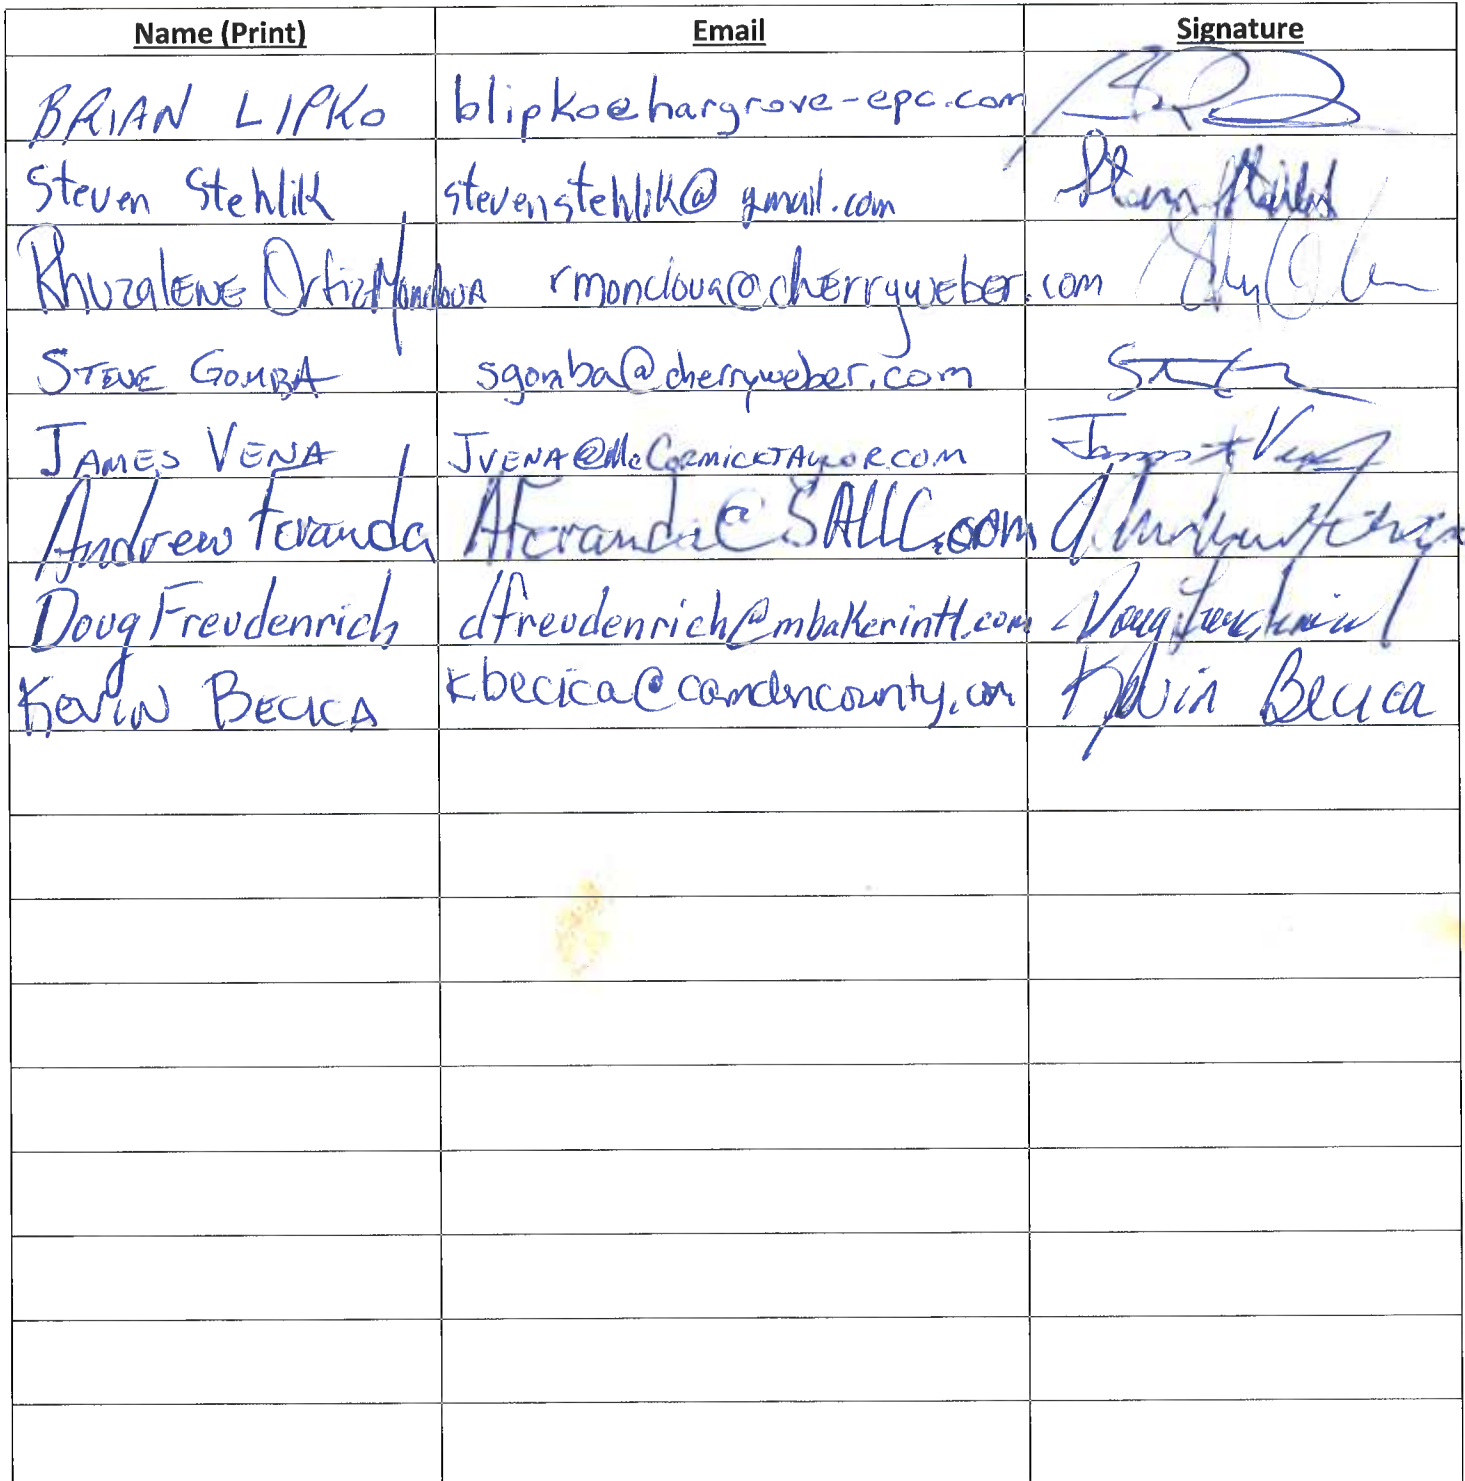 Name (Print) Email Signature
BRIAN LIPKO blipko@hargrove-epc.com
Steven Stehlik stevenstehlik@gmail.com
RhuzalENE Ortiz Monclova rmonclova@cherryweber.com
STEVE GOMBA sgomba@cherryweber.com
JAMES VENA JVENA@McCORMICKTAYLOR.COM
Andrew Feranda AFeranda@SALLC.com
Doug Freudenrich dfreudenrich@mbakerintl.com Doug Freudenrich
KEVIN BECICA kbecica@camdencounty.com Kevin Becica